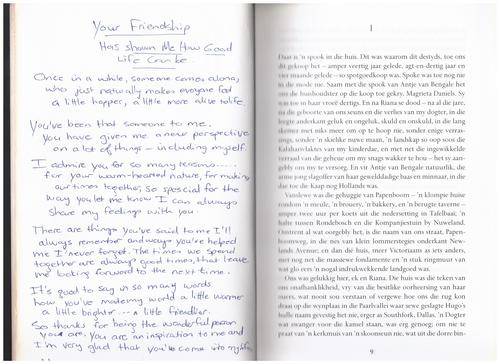 Your Friendship
Has Shown Me How Good
Life Can be
Once in a while, someone comes along,
who just naturally makes everyone feel
a little happier, a little more alive to life.
You've been that someone to me.
You have given me a new perspective
on a lot of things - including myself.
I admire you for so many reasons.....
for your warm-hearted nature, for making
our times together, so special for the
way you let me know I can always
share my feelings with you.
There are things you've said to me I'll
always remember and ways you've helped
me I'll never forget. The times we spend
together are always good times, that leave
me looking forward to the next time.
It's good to say in so many words
how you've made my world a little warmer
a little brighter... a little friendlier.
So thanks for being the wonderful person
you are. You are an inspiration to me and
I'm very glad that you've come into my life
1
Daar is 'n spook in die huis. Dit was waarom dit destyds, toe ons
dit gekoop het – amper veertig jaar gelede, agt-en-dertig jaar en
vier maande gelede – so spotgoedkoop was. Spoke was toe nog nie
in die mode nie. Saam met die spook van Antje van Bengale het
ons die huishoudster op die koop toe gekry. Magrieta Daniels. Sy
was toe in haar vroeë dertigs. En na Riana se dood – na al die jare,
na die geboorte van ons seuns en die verlies van my dogter, in die
leegte anderkant geluk en ongeluk, skuld en onskuld, in die lang
skemer met niks meer om op te hoop nie, sonder enige verras-
sings, sonder 'n slegte nuwe maan, 'n landskap so oop soos die
Kalahari van my kinderdae, en met net die ingewikkelde
verraad van die geheue om my snags wakker te hou – het sy aan-
gebly om my te versorg. En sy Antje van Bengale natuurlik, die
arme jong slagoffer van haar gewelddadige baas en minnaar, in die
dae toe die Kaap nog Hollands was.
Vanslewe was die gehuggie van Papenboom – 'n klompie huise
rondom 'n meule, 'n brouery, 'n bakkery, 'n berugte taverne –
amper twee uur per koets uit die nedersetting in Tafelbaai; 'n
halte tussen Rondebosch en die Kompanjiestuin by Nuweland.
Omtrent al wat oorgebly het, is die naam van ons straat, Papen-
boomweg, in die nes van klein lommersteegies onderkant New-
lands Avenue; en dan die huis, meer Victoriaans as iets anders,
met nog net die massiewe fondamente en 'n stuk ringmuur van
wat glo eers 'n nogal indrukwekkende landgoed was.
Ons was gelukkig hier, ek en Riana. Die huis was die teken van
ons onafhanklikheid, vry van die besitlike oorheersing van haar
ouers, wat nooit sou verstaan of vergewe hoe ons die rug kon
draai op die wynplaas in die Paarlvallei waar sewe geslagte Hugo's
hulle naam gevestig het nie, erger as Southfork, Dallas. 'n Dogter
wat swanger voor die kansel staan, was erg genoeg; om nie te
praat van 'n kerkmuis van 'n skoonseun nie, wat uit die dorre bin-
9